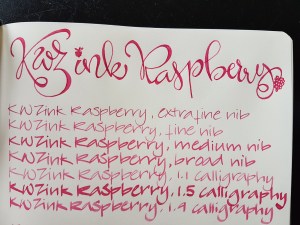 KWZ ink Raspberry
KWZink Raspberry, extrafine nib
KWZink Raspberry, fine nib
KWZink Raspberry, medium nib
KWZink Raspberry, broad nib
KWZink Raspberry, 1.1 calligraphy
KWZink Raspberry, 1.5 calligraphy
KWZink Raspberry, 1.9 calligraphy